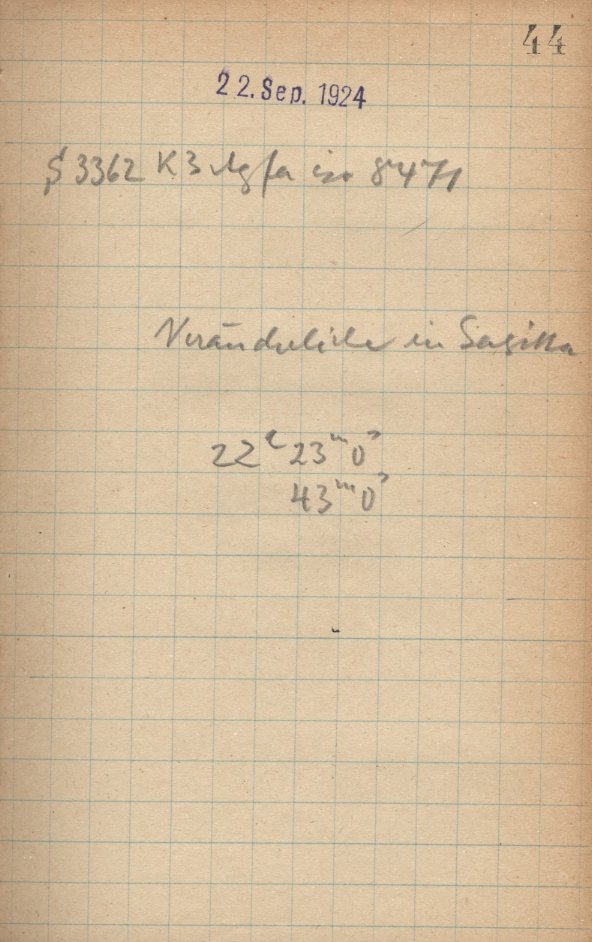 44
22. Sep. 1924
S 3362 K3 Agfa iso 8471
Veränderliche in Sagitta
22ʰ 23ᵐ 0ˢ
43ᵐ 0ˢ